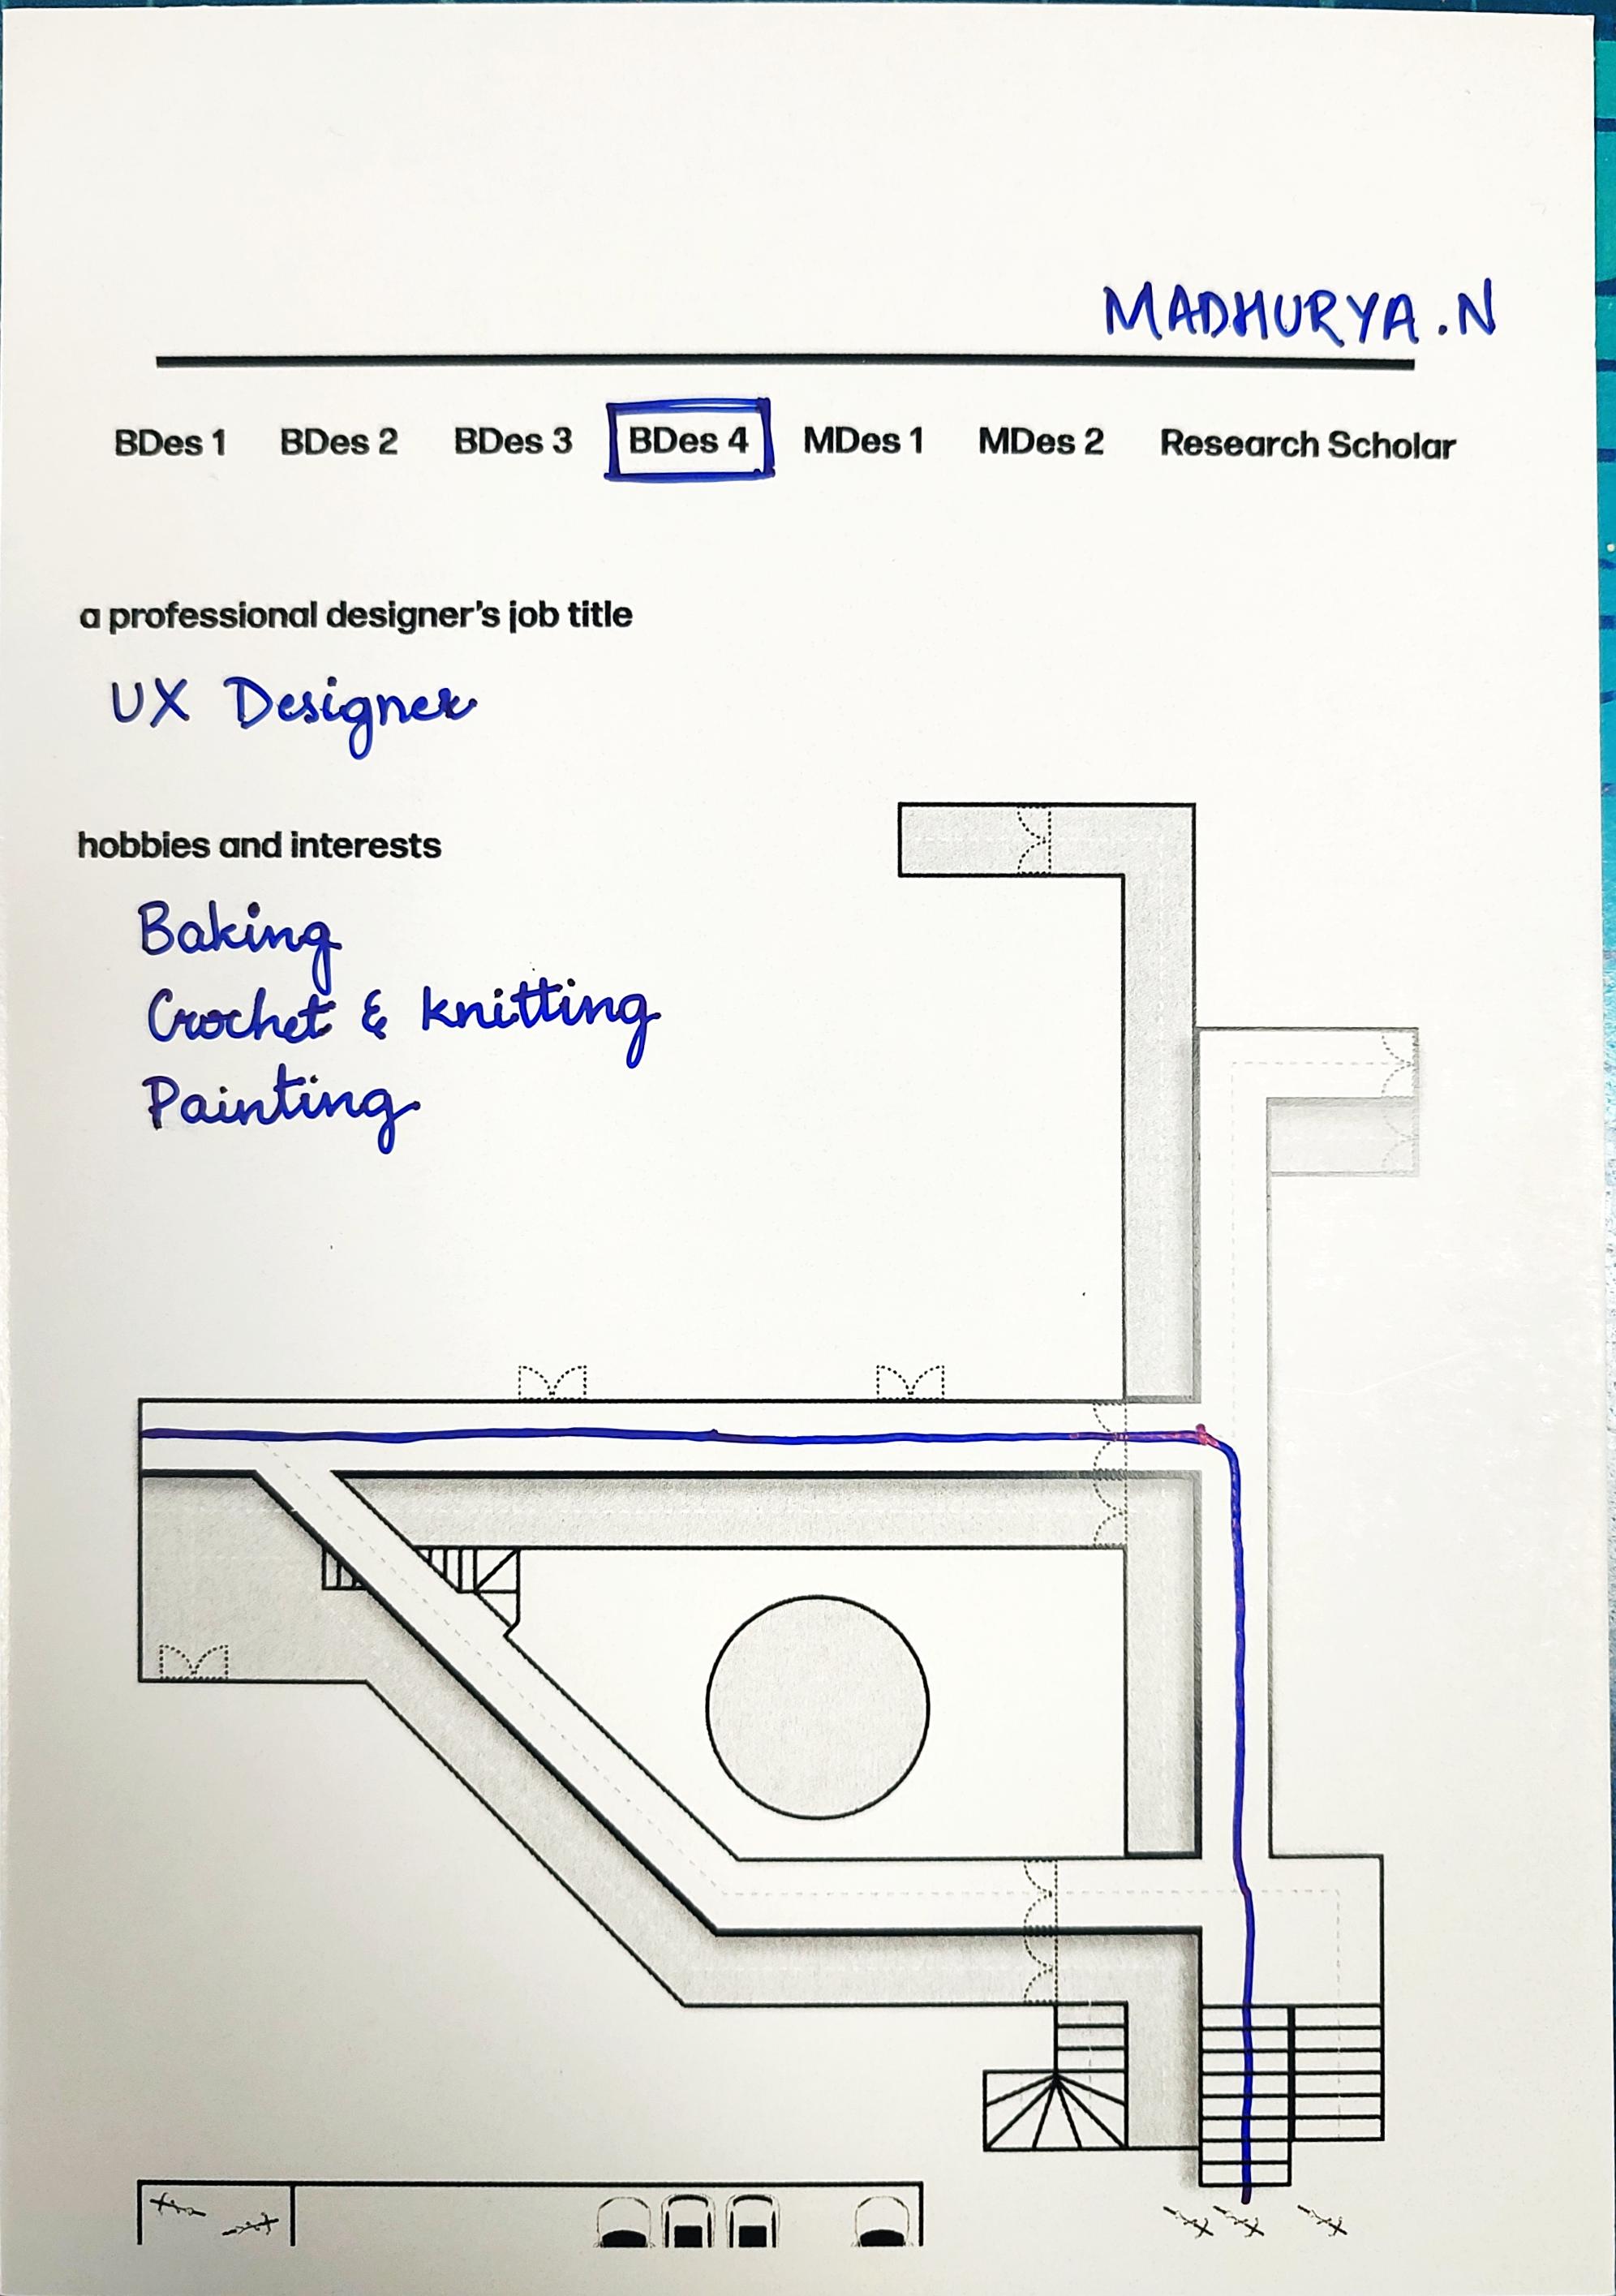 MADHURYA.N
BDes 1 BDes 2 BDes 3 BDes 4 MDes 1 MDes 2 Research Scholar
a professional designer's job title
UX Designer
hobbies and interests
Baking
Crochet & knitting
Painting